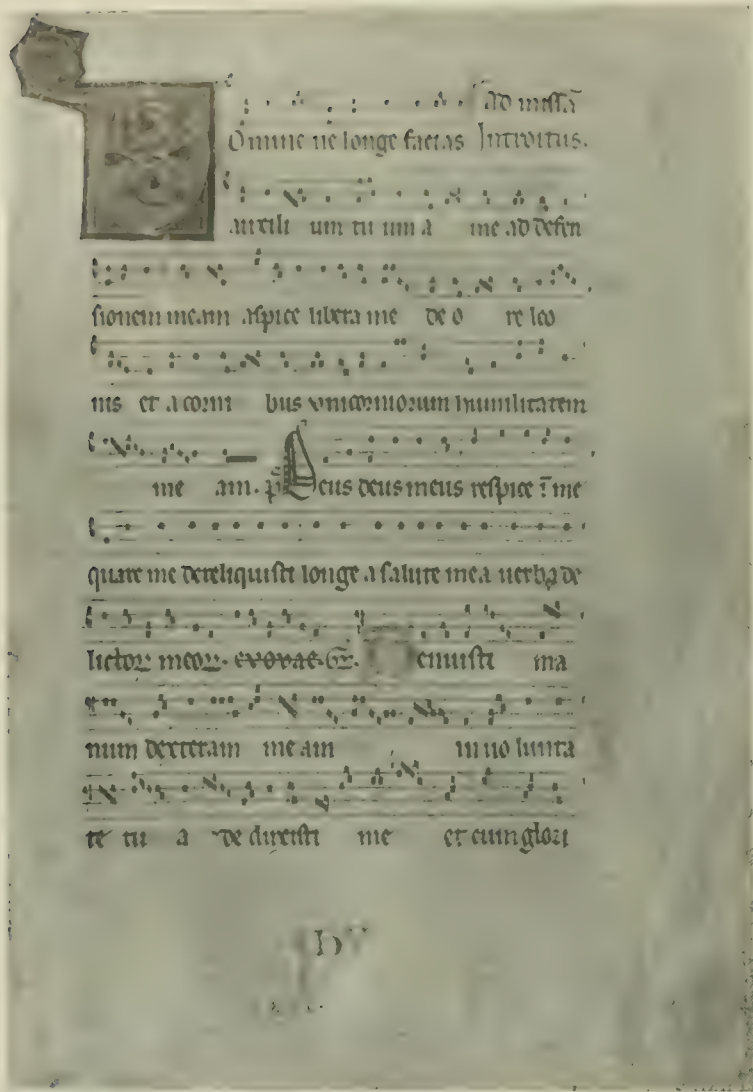 ad missā
Omine ne longe facias Introitus.
auxili um tu um a me ad defen
sionem meam aspice libera me de o re leo
nis et a corni bus unicorniorum humilitatem
me am. p̄s Deus deus meus respice ī me
quare me dereliquisti longe a salute mea uerba de
lictoꝝ meoꝝ. euouae. Gr̄. Tenuisti ma
num dexteram me am in uo lunta
te tu a de duxisti me et cum glori